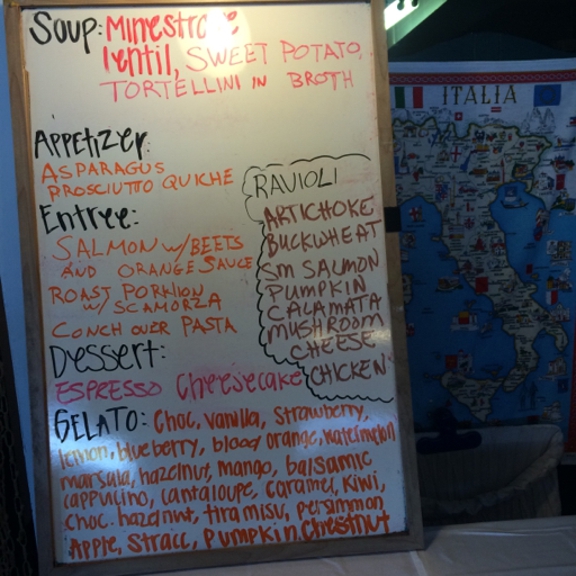 SOUP: Minestrone
lentil, SWEET POTATO,
TORTELLINI IN BROTH
APPETIZER:
ASPARAGUS
PROSCIUTTO QUICHE
Entree:
SALMON w/BEETS
AND ORANGE SAUCE
ROAST PORKLION
w/ SCAMORZA
CONCH OVER PASTA
Dessert:
ESPRESSO Cheesecake
RAVIOLI
ARTICHOKE
BUCKWHEAT
SM SALMON
PUMPKIN
CALAMATA
MUSHROOM
CHEESE
CHICKEN
GELATO: Choc, vanilla, Strawberry,
lemon, blueberry, blood orange, watermelon
marsala, hazelnut, mango, balsamic
cappucino, cantaloupe, caramel, kiwi,
choc. hazelnut, tiramisu, persimmon
Apple, Stracc, Pumpkin, Chestnut
ITALIA